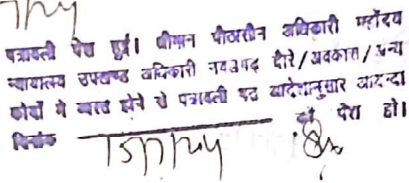 पत्रावली पेश हुई। श्रीमान पीठासीन अधिकारी महोदय
न्यायालय उपखण्ड अधिकारी नवलगढ़ दौरे/अवकाश/अन्य
कार्यो में व्यस्त होने से पत्रावली पूर्व आदेशानुसार आयन्दा
दिनांक को पेश हो।